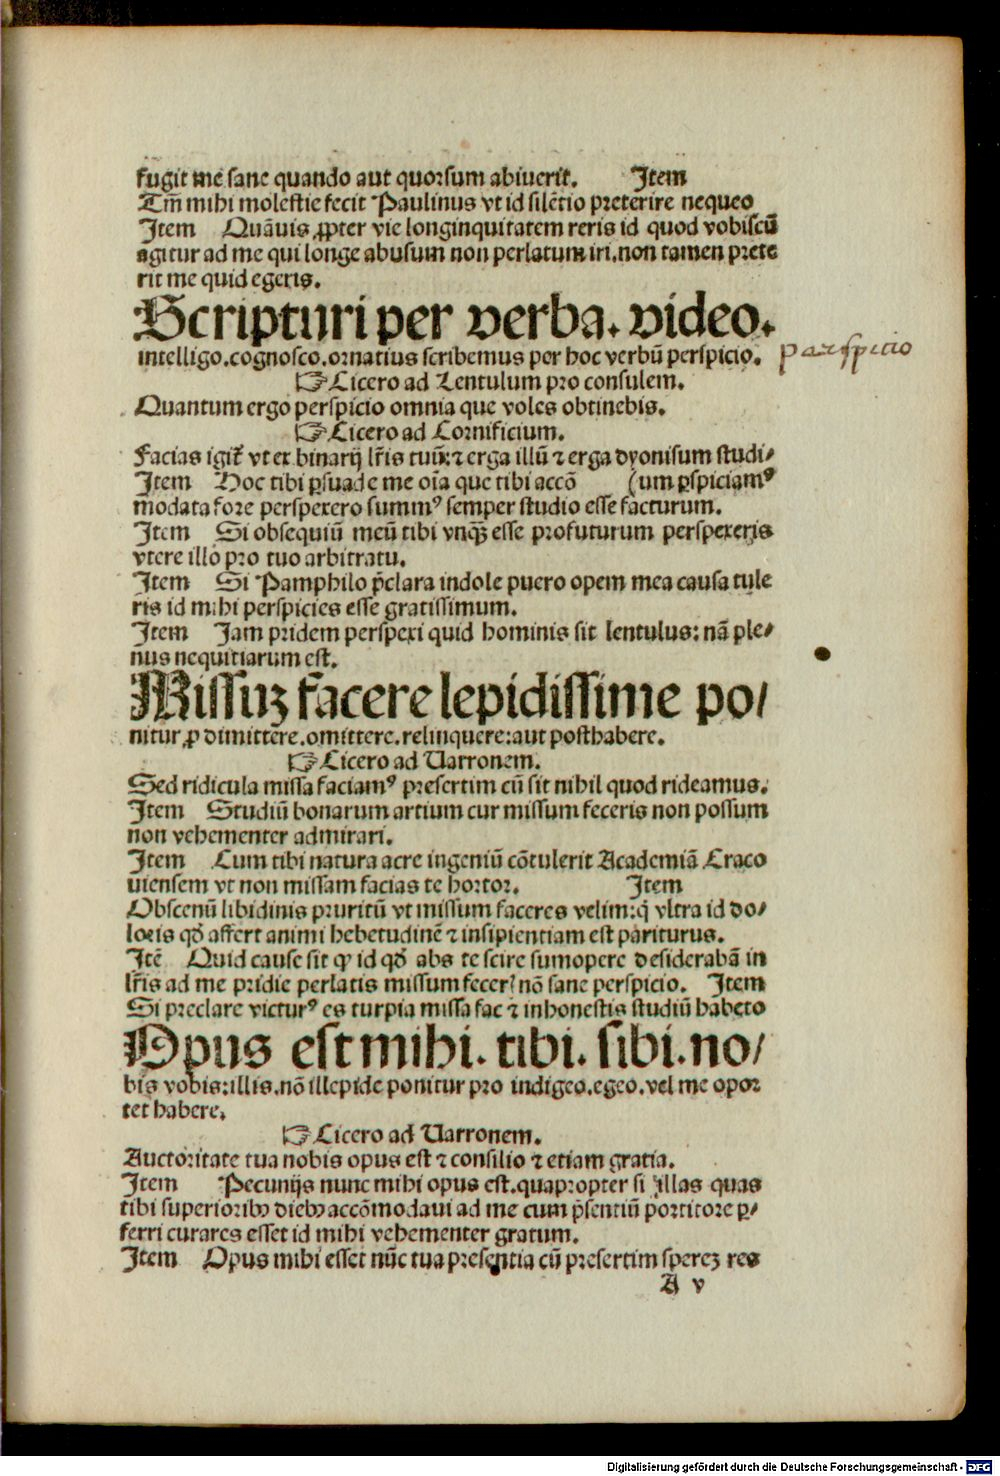 fugit me sane quando aut quorsum abiuerit. Item
Tm̄ mihi molestie fecit Paulinus vt id silẽtio preterire nequeo
Item Quãuis ꝓpter vie longinquitatem reris id quod vobiscũ
agitur ad me qui longe absum non perlatum iri.non tamen prete
rit me quid egeris.
Scripturi per verba. video.
intelligo.cognosco.ornatius scribemus per hoc verbũ perspicio.
perspicio
☞Cicero ad Lentulum pro consulem.
Quantum ergo perspicio omnia que voles obtinebis.
☞Cicero ad Cornificium.
Facias igit̃ vt ex binarij lr̃is tuũ:⁊ erga illũ ⁊ erga dyonisum studi/
Item Hoc tibi ꝑsuade me oĩa que tibi accõ (um ꝑspiciamꝰ
modata fore perspexero summꝰ semper studio esse facturum.
Item Si obsequiũ meũ tibi vnq̃ȝ esse profuturum perspexeris
vtere illo pro tuo arbitratu.
Item Si Pamphilo p̃clara indole puero opem mea causa tule
ris id mihi perspicies esse gratissimum.
Item Jam pridem perspexi quid hominis sit lentulus: nã ple/
nus nequitiarum est.
Missuȝ facere lepidissime po/
nitur ꝓ dimittẽre.omittere.relinquere:aut posthabere.
☞Cicero ad Uarronem.
Sed ridicula missa faciamꝰ presertim cũ sit nihil quod rideamus.
Item Studiũ bonarum artium cur missum feceris non possum
non vehementer admirari.
Item Cum tibi natura acre ingeniũ cõtulerit Academiã Craco
uiensem vt non missam facias te hortor. Item
Obscenũ libidinis pruritũ vt missum faceres velim:q̃ vltra id do/
loris qđ affert animi hebetudinẽ ⁊ insipientiam est pariturus.
Itẽ Quid cause sit ꝙ id qđ abs te scire sumopere desiderabã in
lr̃is ad me pridie perlatis missum fecer̃ nõ sane perspicio. Item
Si preclare victurꝰ es turpia missa fac ⁊ inhonestis studiũ habeto
Opus est mihi. tibi. sibi.no/
bis vobis:illis.nõ illepide ponitur pro indigeo.egeo.vel me opor
tet habere.
☞Cicero ad Uarronem.
Auctoritate tua nobis opus est ⁊ consilio ⁊ etiam gratia.
Item Pecunijs nunc mihi opus est.quapropter si illas quas
tibi superioribꝰ diebꝰ accõmodaui ad me cum p̃sentiũ portitore ꝑ/
ferri curares esset id mihi vehementer gratum.
Item Opus mihi esset nũc tua presentia cũ presertim spereȝ res
A v
Digitalisierung gefördert durch die Deutsche Forschungsgemeinschaft - DFG